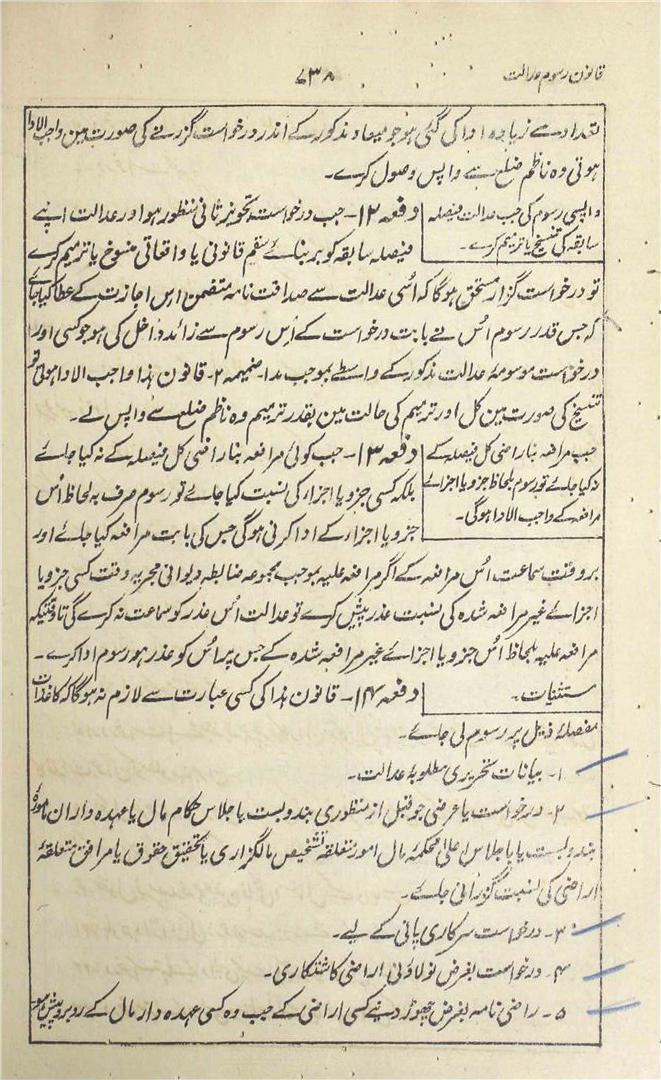 قانون رسوم عدالت
۷۳۸
تعداد سے زیادہ ادا کی گئی ہو جو میعاد مذکور کے اندر درخواست گزرنے کی صورت مین واجب الادا
ہوتی وہ ناظم ضلع سے واپس وصول کرے۔
واپسی رسوم کی جب عدالت فیصلہ
سابقہ کی تنسیخ یا ترمیم کرے۔
دفعہ ۱۲۔ جب درخواست تجویز ثانی منظور ہو اور عدالت اپنے
فیصلہ سابقہ کو بر بنائے سقم قانونی یا واقعاتی منسوخ یا ترمیم کرے
تو درخواست گزار مستحق ہوگا کہ اُسی عدالت سے صداقت نامہ متضمن اس اجازت کے عطا کیا جائے
کہ جس قدر رسوم اُس نے بابت درخواست کے اُس رسوم سے زائد داخل کی ہو جو کسی اور
درخواست موسومۂ عدالت مذکور کے واسطے بموجب مد ا۔ ضمیمہ ۲۔ قانون ہذا واجب الادا ہوتی تو
تنسیخ کی صورت مین کل اور ترمیم کی حالت مین بقدر ترمیم وہ ناظم ضلع سے واپس لے۔
جب مرافعہ بناراضی کل فیصلہ کے
نہ کیا جائے تو رسوم بلحاظ جزو یا اجزائے
مرافعہ کے واجب الادا ہوگی۔
دفعہ ۱۳۔ جب کوئی مرافعہ بناراضی کل فیصلہ کے نہ کیا جائے
بلکہ کسی جزو یا اجزاء کی نسبت کیا جائے تو رسوم صرف بہ لحاظ اُس
جزو یا اجزاء کے ادا کرنی ہوگی جس کی بابت مرافعہ کیا جائے اور
بروقت سماعت اُس مرافعہ کے اگر مرافعہ علیہ بموجب مجموعہ ضابطہ دیوانی مجریہ وقت کسی جزو یا
اجزائے غیر مرافعہ شدہ کی نسبت عذر پیش کرے تو عدالت اُس عذر کو سماعت نہ کرے گی تاوقتیکہ
مرافعہ علیہ بلحاظ اُس جزو یا اجزائے غیر مرافعہ شدہ کے جس پر اُس کو عذر ہو رسوم ادا کرے۔
مستثنیات۔
دفعہ ۱۴۔ قانون ہذا کی کسی عبارت سے لازم نہ ہوگا کہ کاغذات
مفصلۂ ذیل پر رسوم لی جائے۔
۱۔ بیانات تحریری مطلوبۂ عدالت۔
۲۔ درخواست یا عرضی جو قبل از منظوری بندوبست باجلاس حکام مال یا عہدہ داران مامورہ
بندوبست یا باجلاس اعلیٰ محکمۂ مال امور متعلقہ تشخیص مالگزاری یا تحقیق حقوق یا مرافق متعلقۂ
اراضی کی نسبت گزرانی جائے۔
۳۔ درخواست سرکاری پانی کے لیے۔
۴۔ درخواست بغرض نولاؤنی اراضی کاشتکاری۔
۵۔ راضی نامہ بغرض چھوڑ دینے کسی اراضی کے جب وہ کسی عہدہ دار مال کے روبرو پیش ہو۔